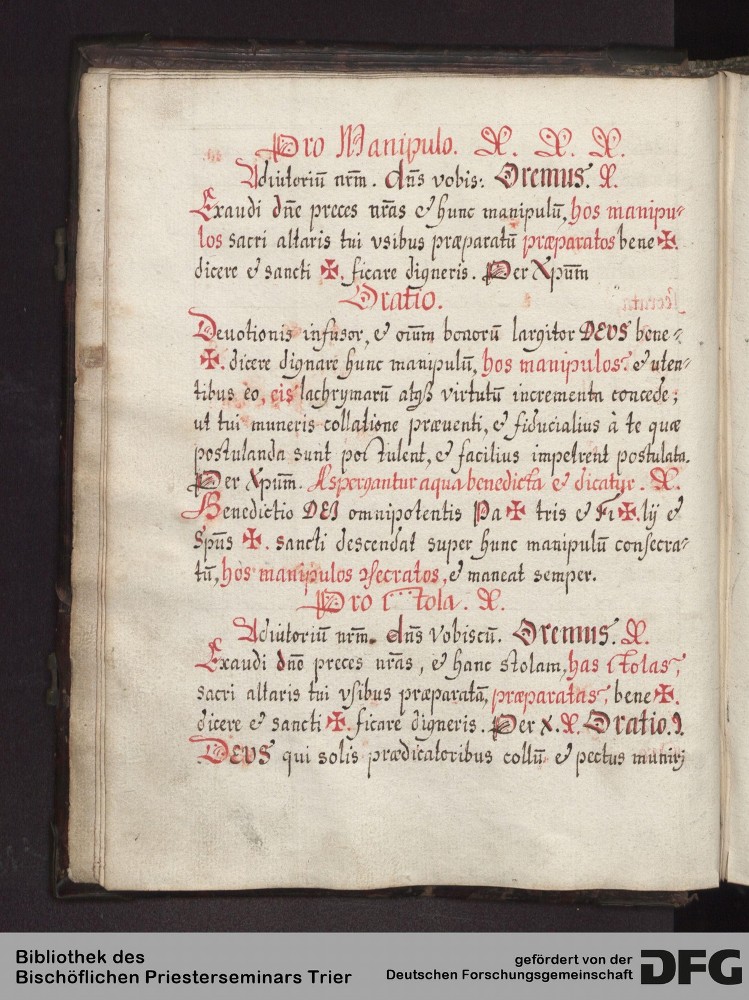 Pro Manipulo.
Adiutoriū nr̄m. dn̄s vobis: Oremus.
Exaudi dn̄e preces nr̄as & hunc manipulū, hos manipu-
los sacri altaris tui vsibus præparatū præparatos bene ✠.
dicere & sancti ✠. ficare digneris. Per Xpum̄
Oratio.
Deuotionis infusor, & oīum bonorū largitor DEVS bene-
✠. dicere dignare hunc manipulū, hos manipulos, & uten-
tibus eo, eis lachrymarū atqз virtutū incrementa concede;
ut tui muneris collatione præuenti, & fiducialius à te quæ
postulanda sunt postulent, & facilius impetrent postulata.
Per Xpum̄. Aspergantur aqua benedicta & dicatur.
Benedictio DEI omnipotentis Pa ✠ tris & Fi ✠. lij &
Spūs ✠. sancti descendat super hunc manipulū consecra-
tū, hos manipulos ɔsecratos, & maneat semper.
Pro stola.
Adiutoriū nr̄m. dn̄s Vobiscū. Oremus.
Exaudi dn̄e preces nr̄as, & hanc stolam, has stolas,
sacri altaris tui vsibus præparatū, præparatas, bene ✠.
dicere & sancti ✠. ficare digneris. Per X. Oratio.
DEVS qui solis prædicatoribus collū & pectus munirj
Bibliothek des
Bischöflichen Priesterseminars Trier
gefördert von der
Deutschen Forschungsgemeinschaft DFG